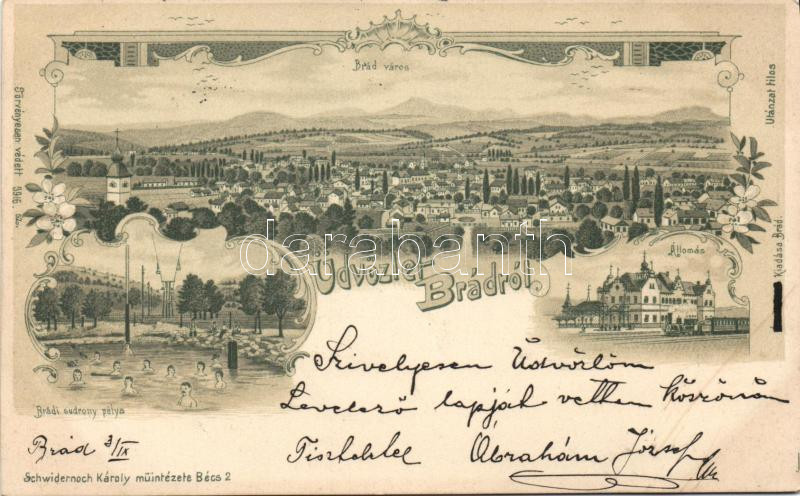 Brád város
Törvényesen védett 3916. szám.
Utánzat tilos
Kiadása Brád.
Állomás
Üdvözlet
Brádról
darabanth.com
Brádi sudrony pálya
Szivelyesen Üdvözlöm
Levelező lapját vettem köszönöm
Brád 3/IX
Tisztelettel Ábrahám József
Schwidernoch Károly müintézete Bécs 2